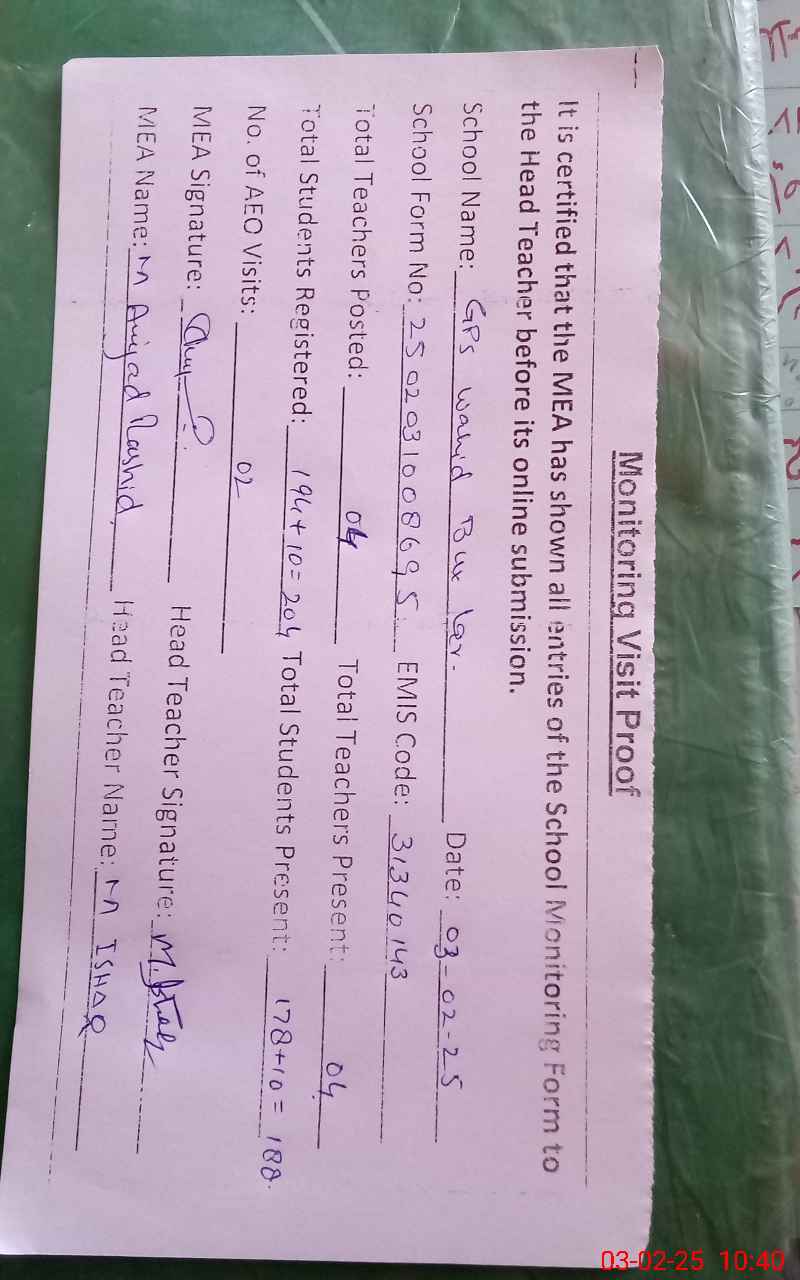 Monitoring Visit Proof
It is certified that the MEA has shown all entries of the School Monitoring Form to
the Head Teacher before its online submission.
School Name: GPS Wahid Bux lar. Date: 03-02-25
School Form No: 2502031008695 EMIS Code: 31340143
Total Teachers Posted: 04 Total Teachers Present: 04
Total Students Registered: 194+10=204 Total Students Present: 178+10=188
No. of AEO Visits: 02
MEA Signature: Head Teacher Signature: M. Ishaq
MEA Name: M Amjad Rashid Head Teacher Name: M ISHAQ
03-02-25 10:40